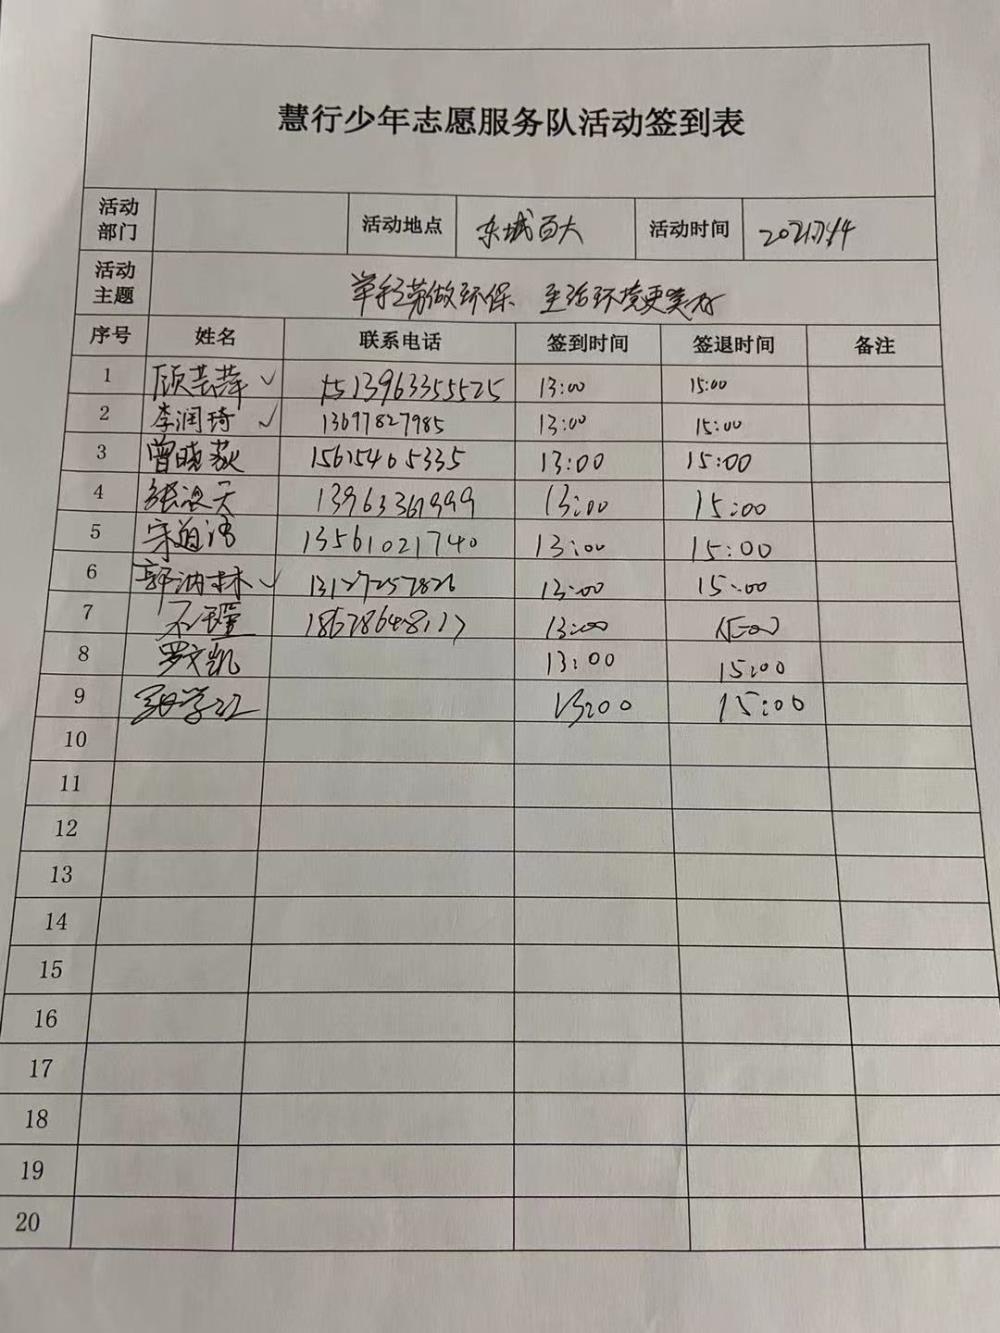 慧行少年志愿服务队活动签到表
活动部门 活动地点 东城百大 活动时间
活动主题 举手之劳做环保 生活环境更美好
序号 姓名 联系电话 签到时间 签退时间 备注
1 顾芸萍 ✓ 13963355525 13:00 15:00
2 李润琦 ✓ 13697827985 13:00 15:00
3 曾晓荻 15615405335 13:00 15:00
4 13963361999 13:00 15:00
5 13561021740 13:00 15:00
6 ✓ 13127257826 13:00 15:00
7 13:00 15:00
8 罗文凯 13:00 15:00
9 13:00 15:00
10
11
12
13
14
15
16
17
18
19
20